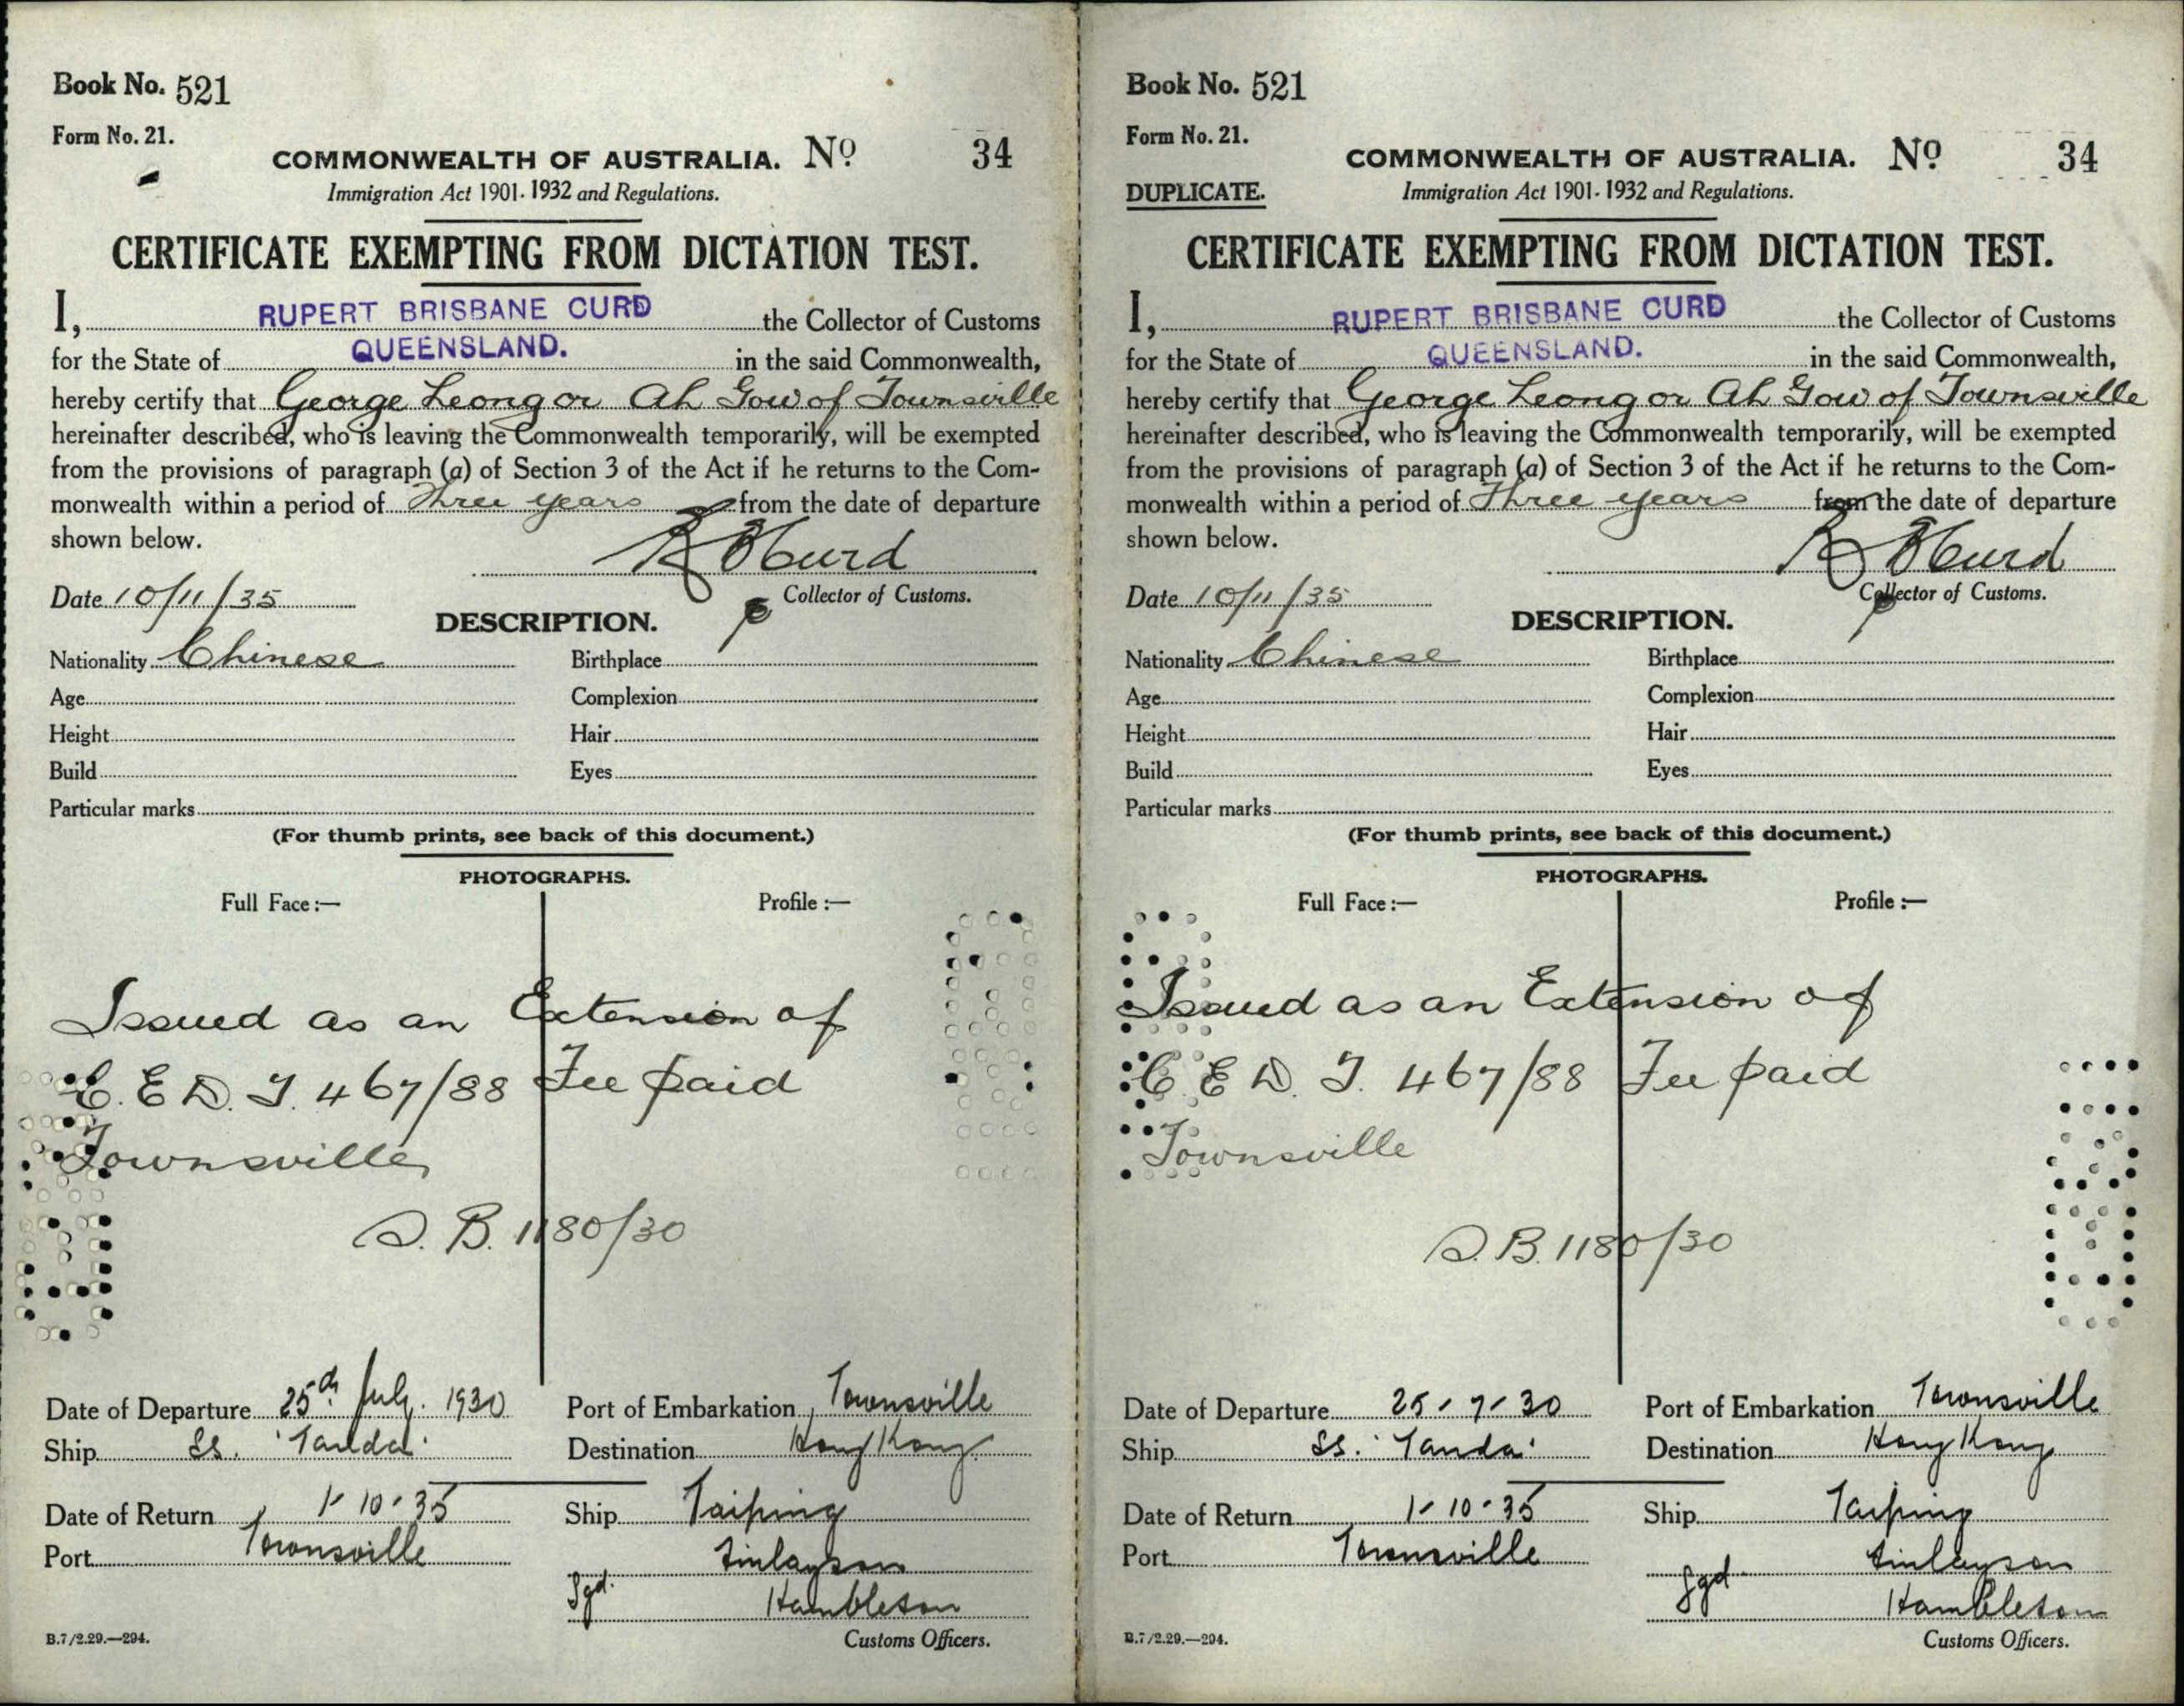 Book No. 521
Form No. 21.
COMMONWEALTH OF AUSTRALIA. No 34
Immigration Act 1901-1932 and Regulations.
CERTIFICATE EXEMPTING FROM DICTATION TEST.
I, RUPERT BRISBANE CURD the Collector of Customs
for the State of QUEENSLAND. in the said Commonwealth,
hereby certify that George Leong or Ah Gow of Townsville
hereinafter described, who is leaving the Commonwealth temporarily, will be exempted
from the provisions of paragraph (a) of Section 3 of the Act if he returns to the Com-
monwealth within a period of Three years from the date of departure
shown below.
R B Curd
Date 10/11/35 Collector of Customs.
DESCRIPTION.
Nationality Chinese Birthplace
Age Complexion
Height Hair
Build Eyes
Particular marks
(For thumb prints, see back of this document.)
PHOTOGRAPHS.
Full Face:— Profile:—
Issued as an Extension of
C.E.D.T. 467/88 Fee paid
Townsville
S.B. 1180/30
Date of Departure 25th July. 1930 Port of Embarkation Townsville
Ship ss. 'Tanda' Destination Hong Kong
Date of Return 1-10-35 Ship Taiping
Port Townsville Finlayson
Sgd. Hambleton
B.7/2.29.—294. Customs Officers.
Book No. 521
Form No. 21.
COMMONWEALTH OF AUSTRALIA. No 34
DUPLICATE. Immigration Act 1901-1932 and Regulations.
CERTIFICATE EXEMPTING FROM DICTATION TEST.
I, RUPERT BRISBANE CURD the Collector of Customs
for the State of QUEENSLAND. in the said Commonwealth,
hereby certify that George Leong or Ah Gow of Townsville
hereinafter described, who is leaving the Commonwealth temporarily, will be exempted
from the provisions of paragraph (a) of Section 3 of the Act if he returns to the Com-
monwealth within a period of Three years from the date of departure
shown below.
R B Curd
Date 10/11/35 Collector of Customs.
DESCRIPTION.
Nationality Chinese Birthplace
Age Complexion
Height Hair
Build Eyes
Particular marks
(For thumb prints, see back of this document.)
PHOTOGRAPHS.
Full Face:— Profile:—
Issued as an Extension of
C.E.D.T. 467/88 Fee paid
Townsville
S.B. 1180/30
Date of Departure 25-7-30 Port of Embarkation Townsville
Ship ss. 'Tanda' Destination Hong Kong
Date of Return 1-10-35 Ship Taiping
Port Townsville Finlayson
Sgd. Hambleton
B.7/2.29.—294. Customs Officers.